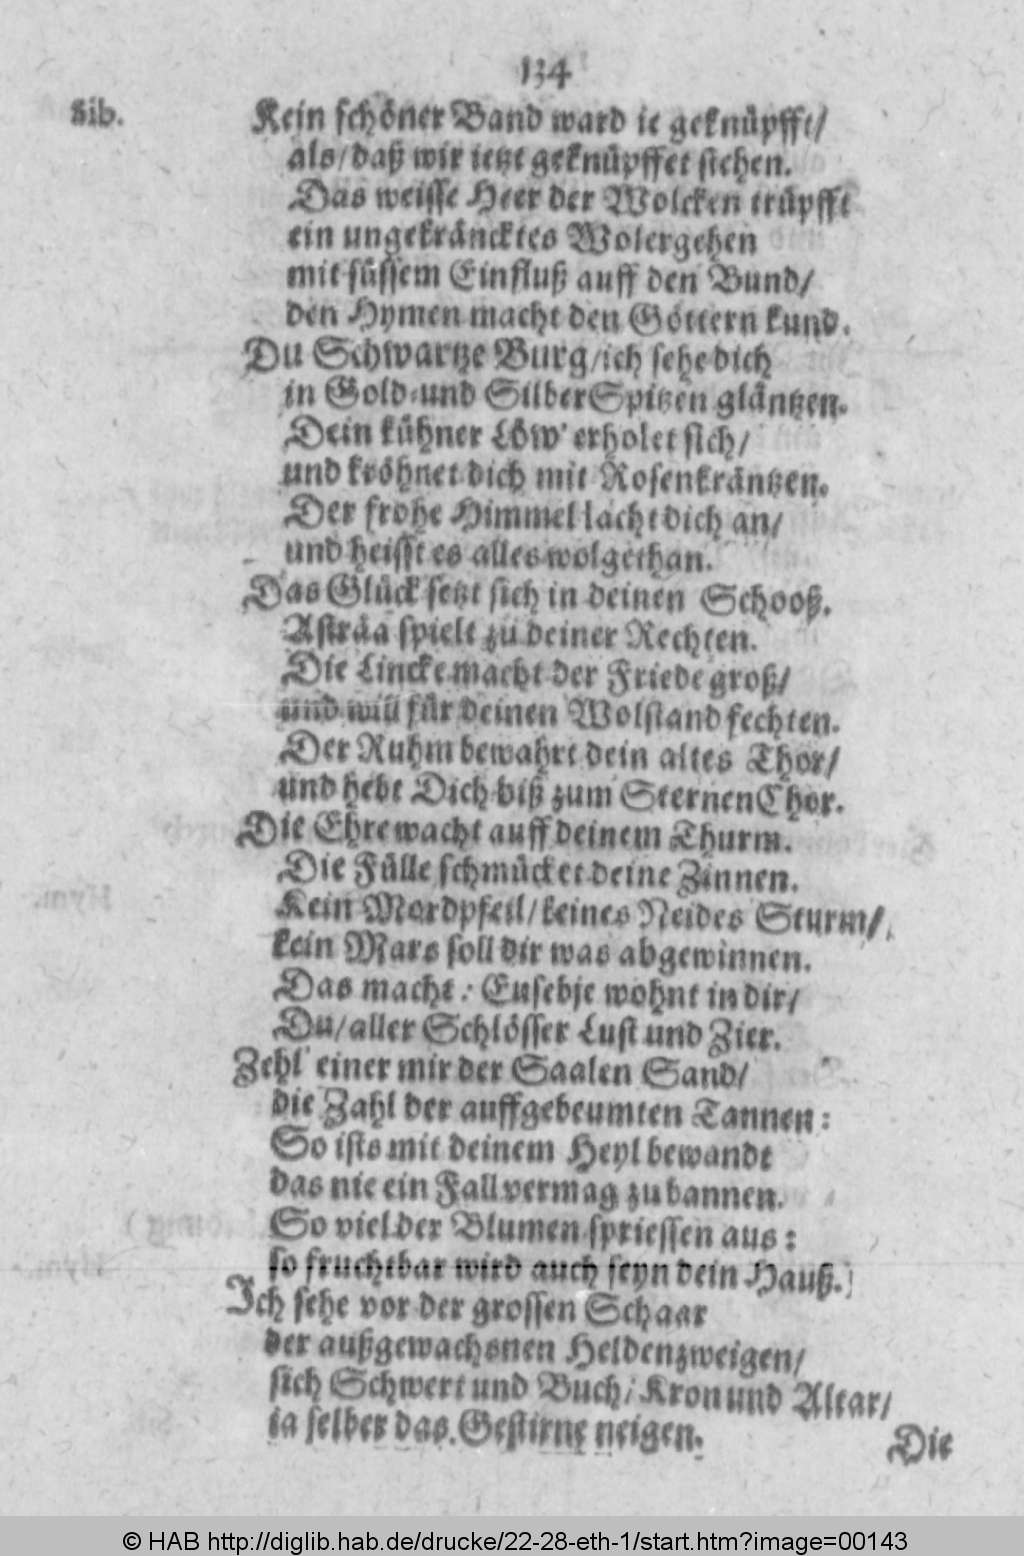 134
Lib.
Kein schöner Band ward ie geknüpfft/
als/daß wir ietzt geknüpffet stehen.
Das weisse Heer der Wolcken trüpfft
ein ungekräncktes Wolergehen
mit süssem Einfluß auff den Bund/
den Hymen macht den Göttern kund.
Du Schwartze Burg/ich sehe dich
in Gold-und SilberSpitzen gläntzen.
Dein kühner Löw' erholet sich/
und kröhnet dich mit Rosenkräntzen.
Der frohe Himmel lacht dich an/
und heisst es alles wolgethan.
Das Glück setzt sich in deinen Schooß.
Asträa spielt zu deiner Rechten.
Die Lincke macht der Friede groß/
und will für deinen Wolstand fechten.
Der Ruhm bewahrt dein altes Thor/
und hebt Dich biß zum SternenChor.
Die Ehre wacht auff deinem Thurm.
Die Fülle schmücket deine Zinnen.
Kein Mordpfeil/keines Neides Sturm/
kein Mars soll dir was abgewinnen.
Das macht: Eusebje wohnt in dir/
Du/aller Schlösser Lust und Zier.
Zehl' einer mir der Saalen Sand/
die Zahl der auffgebeumten Tannen:
So ists mit deinem Heyl bewandt
das nie ein Fall vermag zu bannen.
So viel der Blumen spriessen aus:
so fruchtbar wird auch seyn dein Hauß.
Ich sehe vor der grossen Schaar
der außgewachsnen Heldenzweigen/
sich Schwert und Buch/Kron und Altar/
ia selber das Gestirne neigen.
Die
© HAB http://diglib.hab.de/drucke/22-28-eth-1/start.htm?image=00143